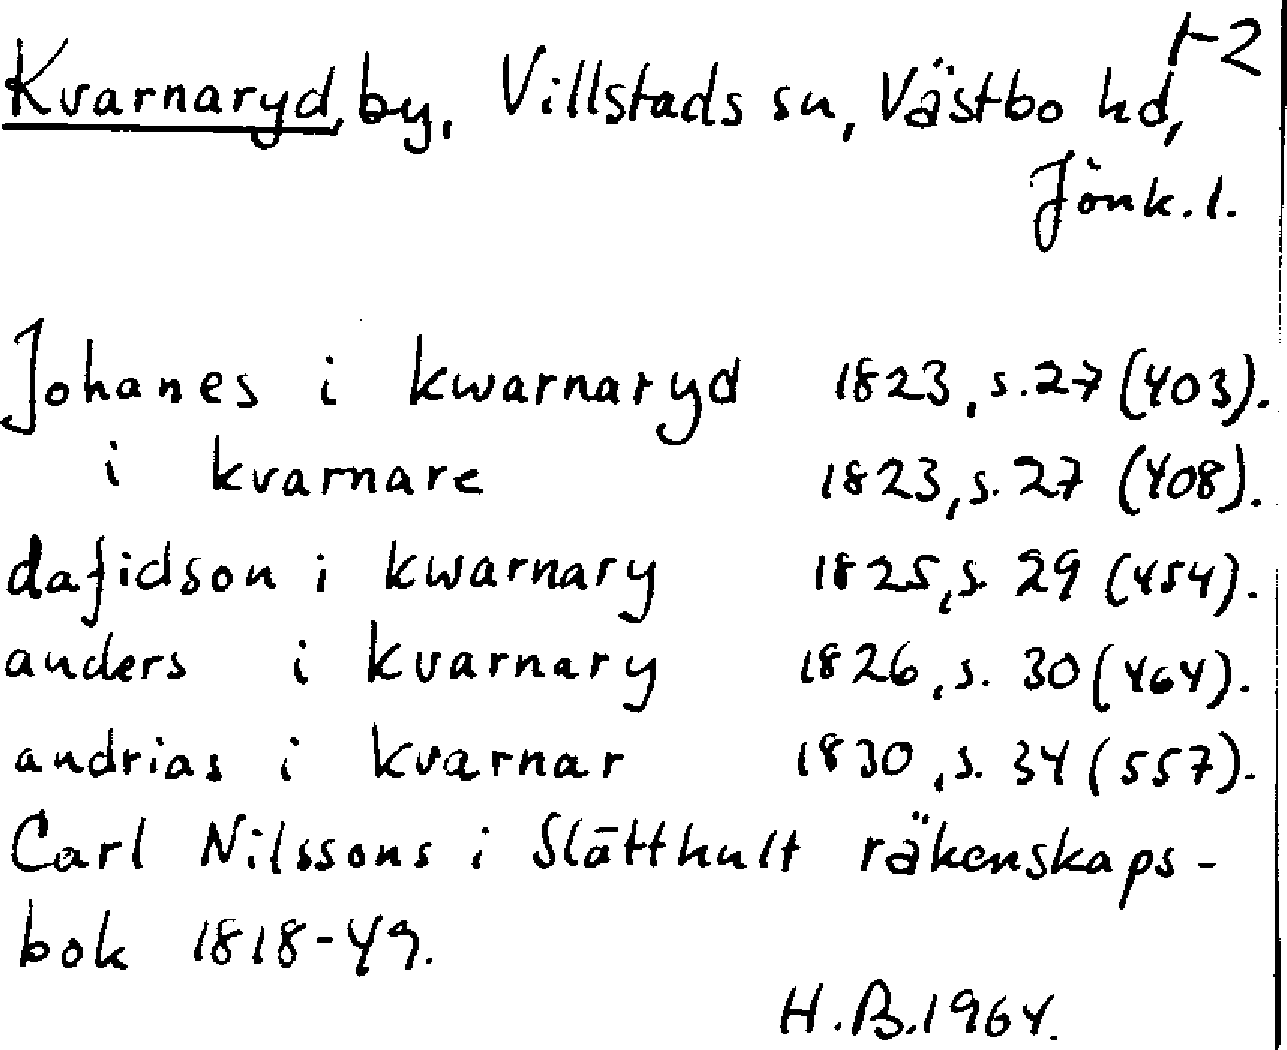 1-2
Kvarnaryd, by, Villstads sn, Västbo hd,
Jönk.l.
Johanes i kwarnaryd 1823, s.27 (403).
i kvarnare 1823, s. 27 (408).
dafidson i kwarnary 1825, s. 29 (454).
anders i kvarnary 1826, s. 30 (464).
andrias i kvarnar 1830, s. 34 (557).
Carl Nilssons i Slätthult räkenskaps-
bok 1818-49.
H.B. 1964.